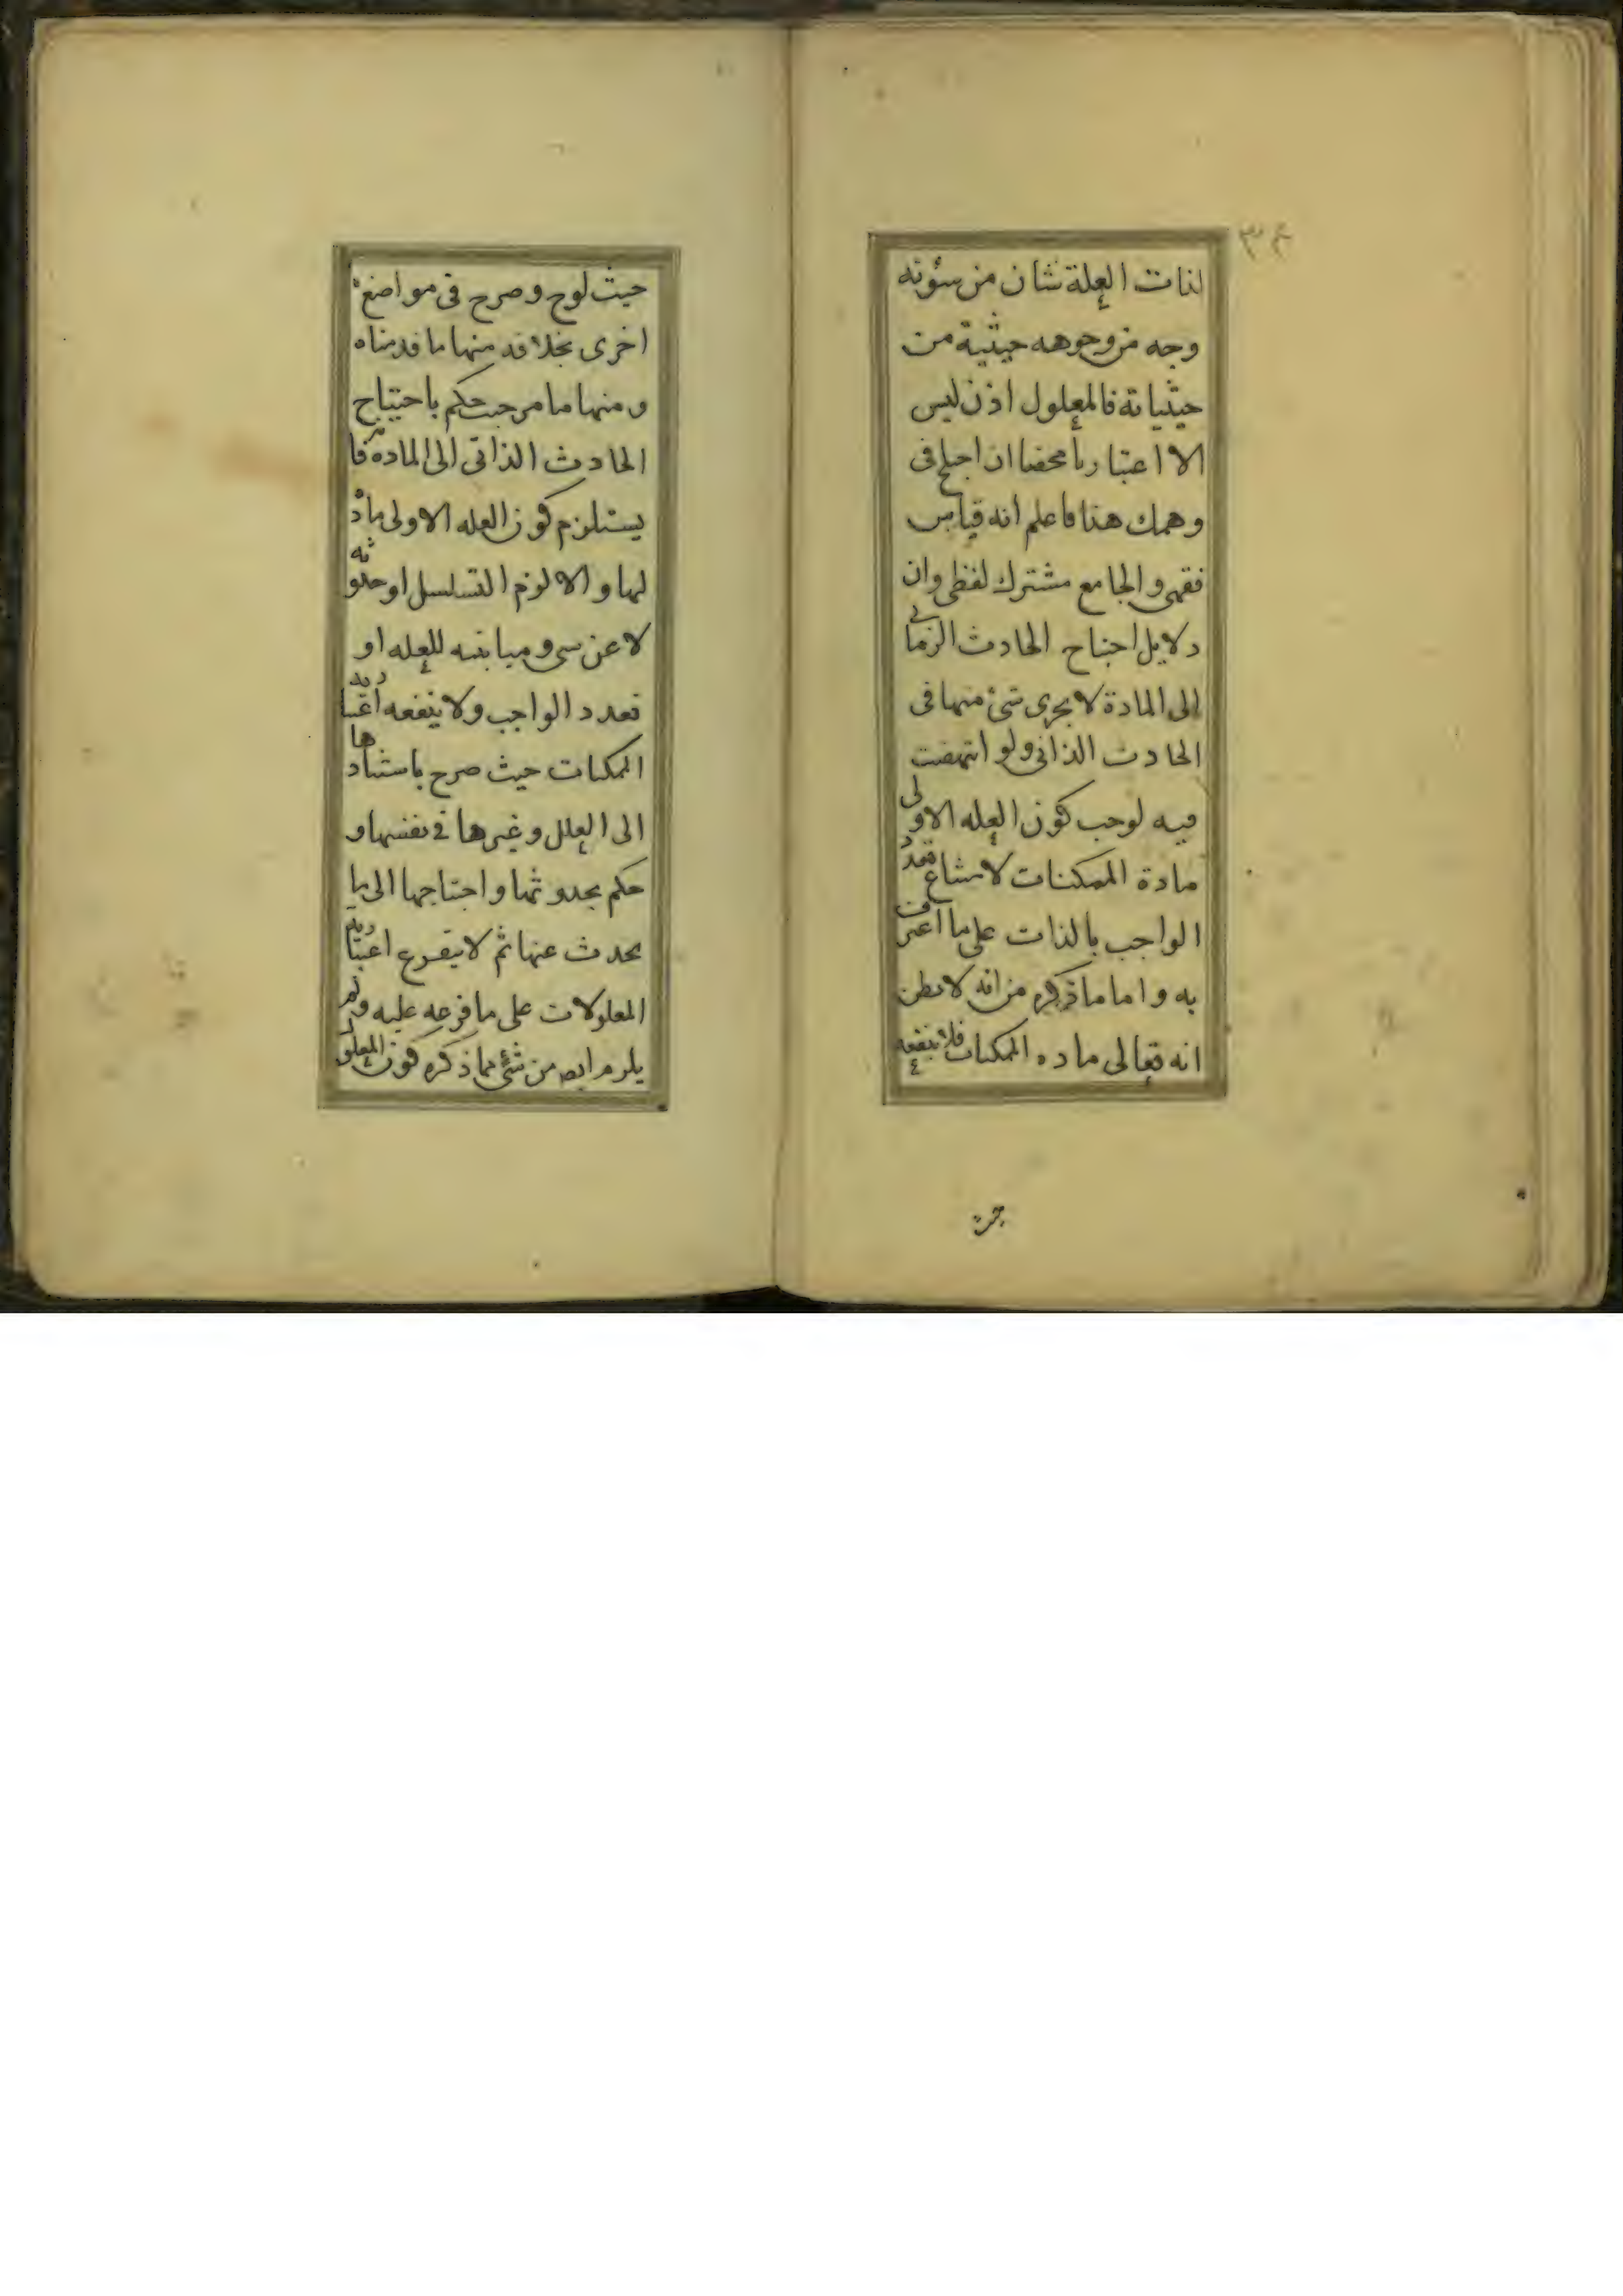 ٣٤
لذات العلة شان من شؤنه
وجه من وجوهه حيثية من
حيثياته فالمعلول اذن ليس
الا اعتباريا محضا ان اختلج فى
وهمك هذا فاعلم انه قياس
فقهى والجامع مشترك لفظى وان
دلايل احتياج الحادث الزمانى
الى المادة لا يجرى شئ منها فى
الحادث الذاتى ولو انتهضت
فيه لوجب كون العله الاولى
مادة الممكنات لامتناع تعدد
الواجب بالذات على ما اعترف
به واما ما ذكره من انه لا يظن
انه تعالى ماده الممكنات فلا ينفعه
حيث
حيث لوح وصرح فى مواضع
اخرى بخلافه منها ما قدمناه
ومنها ما مر حيث حكم باحتياج
الحادث الذاتى الى الماده فانه
يستلزم كون العله الاولى مادة
لها والا لزم التسلسل او حدوثه
لا عن شى ومباينته للعله او
تعدد الواجب ولا ينفعه اعتباريه
الممكنات حيث صرح باستنادها
الى العلل وغيرها فى نفسها و
حكم بحدوثها واحتياجها الى ما
يحدث عنها ثم لا يتفرع اعتباريه
المعلولات على ما فرعه عليه ولم
يلزم ايض من شئ مما ذكره كون المعلول